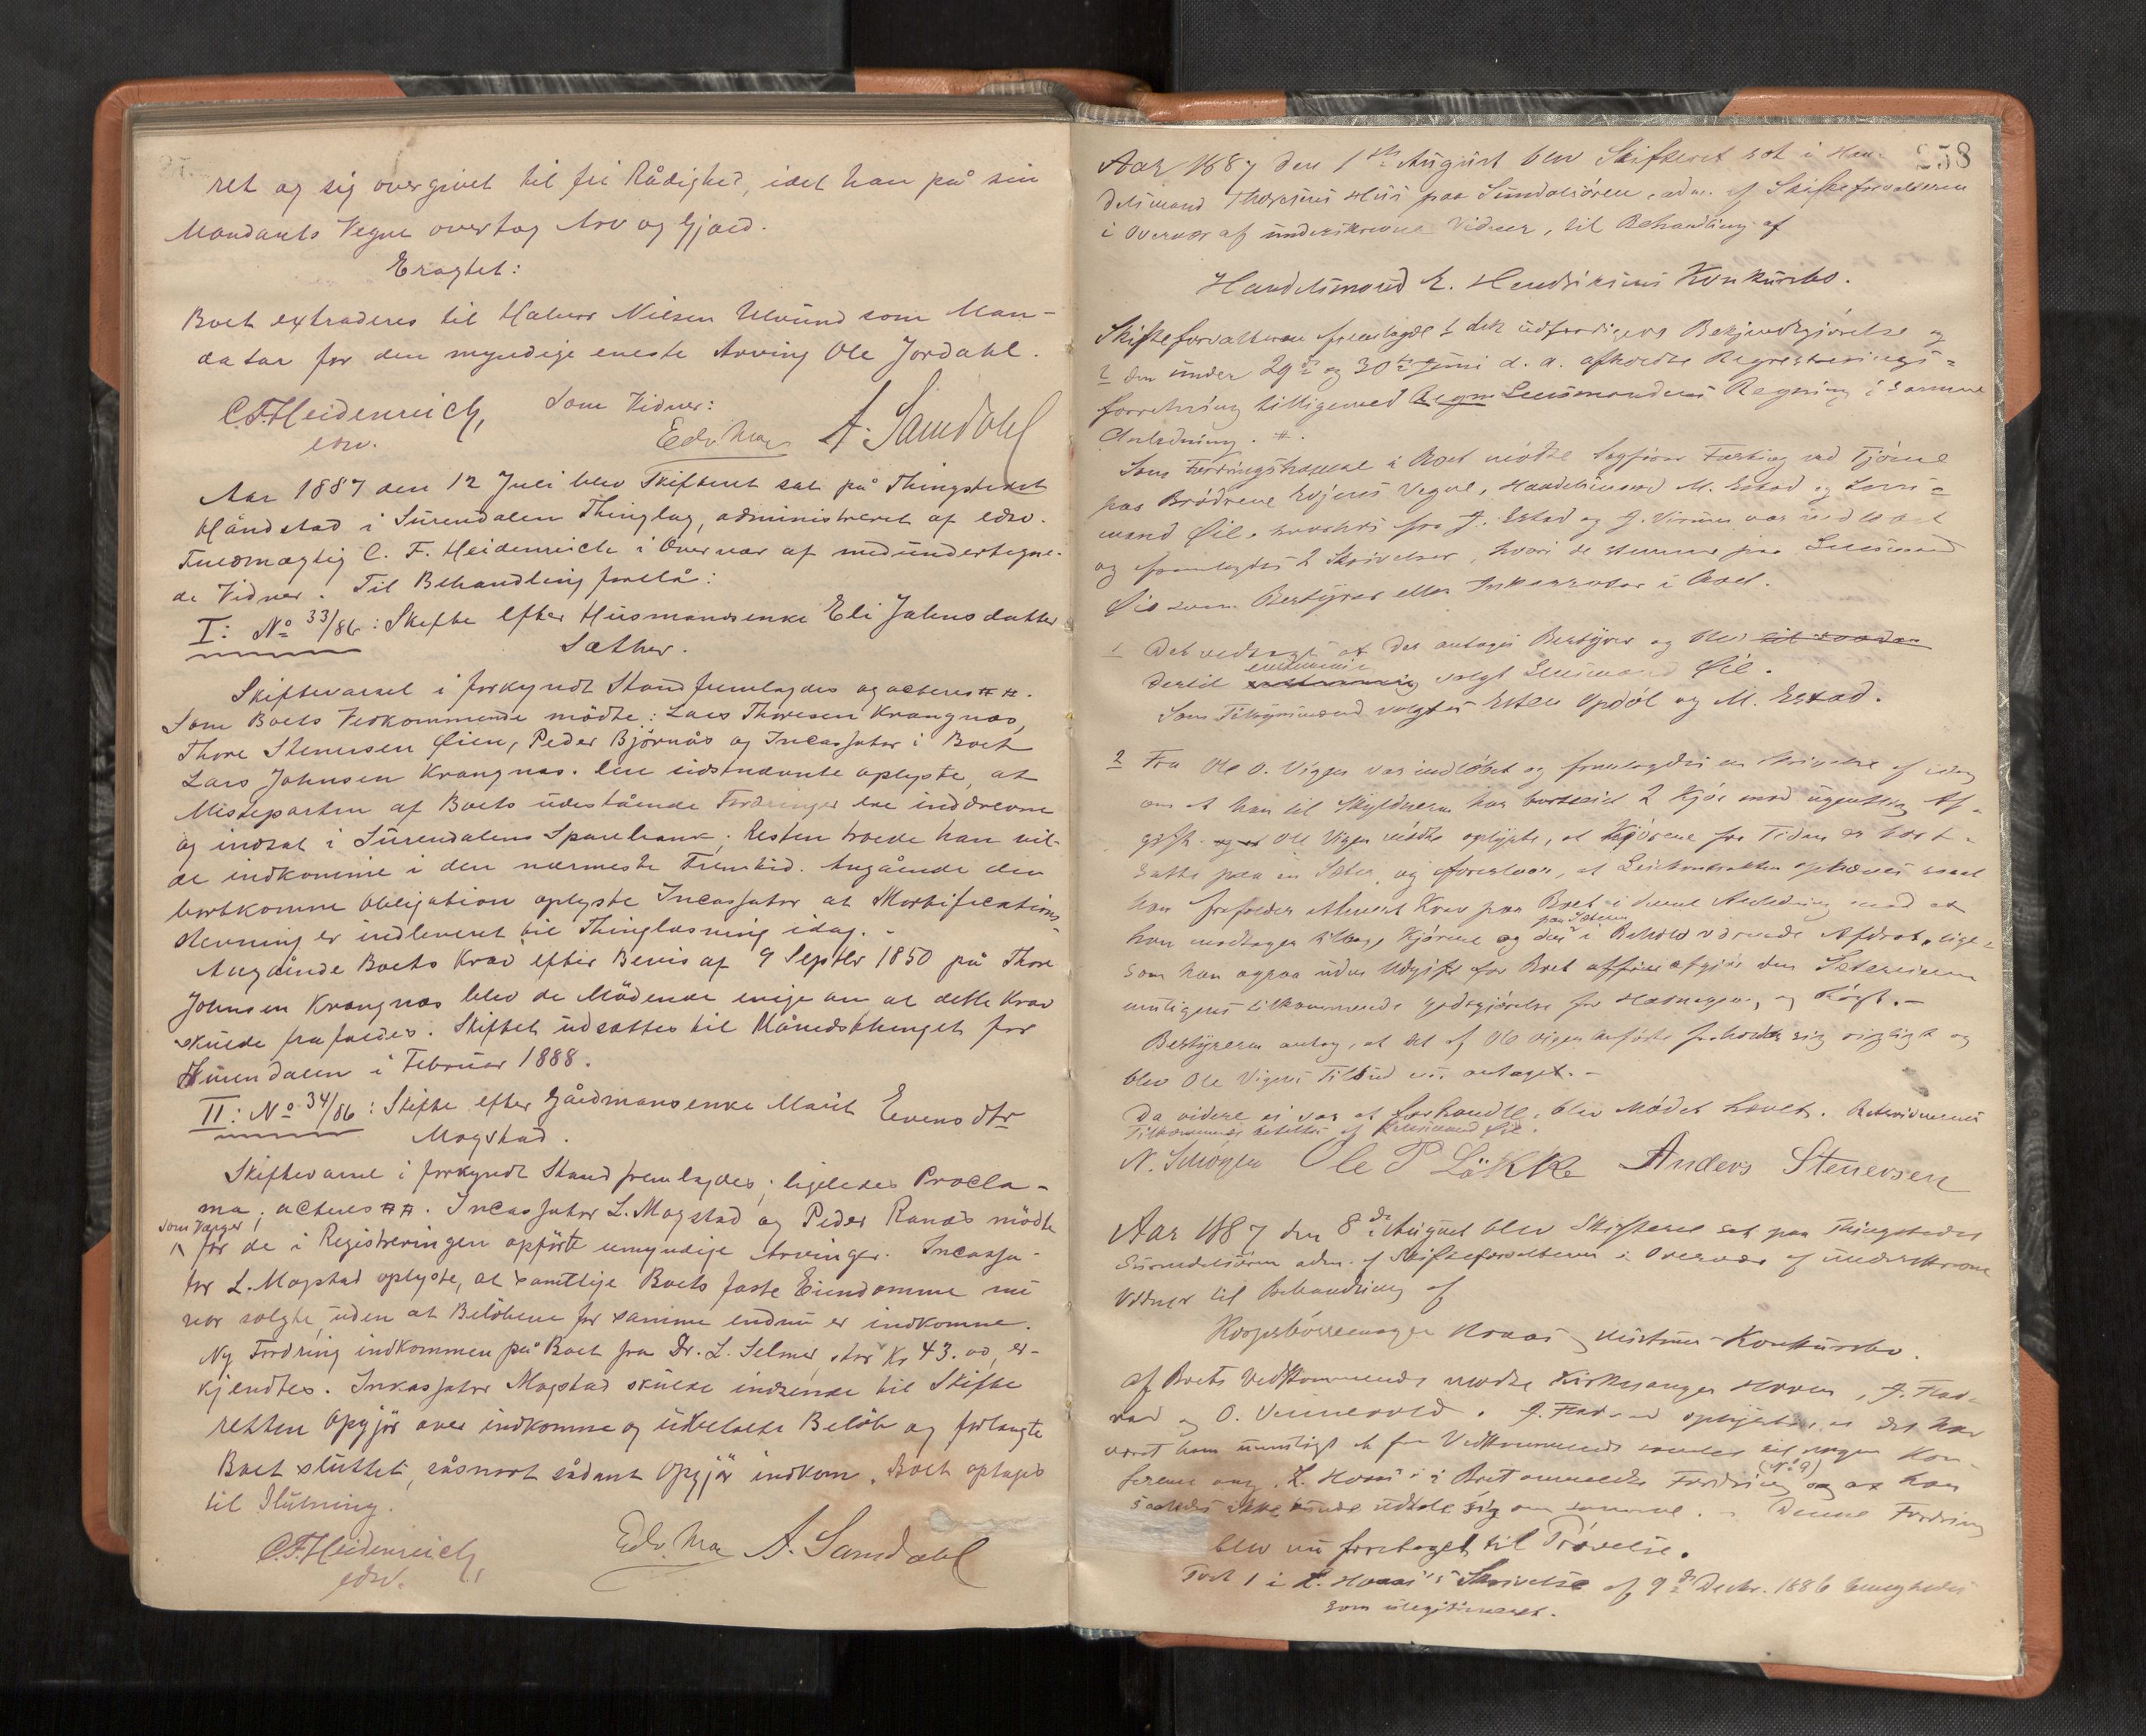 ret og sig overgivet til fri Rådighed, idet han på sin
Mandants Vegne overtog Arv og Gjæld.
Eragtet:
Boet extraderes til Halvor Nilsen Ulvund som Man-
datar for den myndige eneste Arving Ole Jordahl.
C.F. Heidenreich, Som Vidner:
edsv. Edv. A. Samdahl
Aar 1887 den 12 Juli blev Skifteret sat på Thingstedet
Håndstad i Surendalen Thinglag, administreret af edsv.
Fuldmægtig C. F. Heidenreich i Overvær af medundertegne-
de Vidner. Til Behandling forelå:
I: No 33/86: Skifte efter Husmandsenke Eli Johnsdatter
Sæther.
Skiftevarsel i forkyndt Stand fremlagdes og acteres ##.
Som Boets Vedkommende mödte: Lars Thoresen Krangnæs,
Thore Stenersen Öien, Peder Björnås og Incassator i Boet
Lars Johnsen Krangnæs. Den sidstnævnte oplyste, at
Mesteparten af Boets udestående Fordringer ere inddrevne
og indsat i Surendalens Sparebank; Resten troede han vil-
de indkomme i den nærmeste Fremtid. Angående den
bortkomne Obligation oplyste Incassator at Mortifications-
stevning er indleveret til Thinglæsning idag. -
Angående Boets Krav efter Bevis af 9 Septbr 1850 på Thore
Johnsen Krangnæs blev de Mödende enige om at dette Krav
skulde frafaldes. Skiftet udsattes til Månedsthinget for
Surendalen i Februar 1888.
II: No 34/86: Skifte efter Gårdmandsenke Marit Evensdtr
Mogstad.
Skiftevarsel i forkyndt Stand fremlagdes; ligeledes Procla-
ma; acteres ##. Incassator L. Mogstad og Peder Ranæs mödte
som Værger
for de i Registreringen opförte umyndige Arvinger. Incassa-
tor L. Mogstad oplyste, at samtlige Boets faste Eiendomme nu
var solgte, uden at Belöbene for samme endnu er indkomne.
Ny Fordring indkommen på Boet fra Dr. L. Selmer, stor Kr 43.00, er-
kjendtes. Inkassator Mogstad skulde indsende til Skifte
retten Opgjör over indkomne og udbetalte Belöb og forlangte
Boet sluttet, såsnart sådant Opgjör indkom. Boet optages
til Slutning.
C.F. Heidenreich, Edv. A. Samdahl
edsv.
258
Aar 1887 den 1ste August blev Skifteret sat i Han-
delsmand Thoresens Hus paa Sundalsøren, adm. af Skifteforvalteren
i Overvær af underskrevne Vidner, til Behandling af
Handelsmand E. Hendriksens Konkursbo.
Skifteforvalteren fremlagde 1 dek udfærdigede Bekjendtgjørelse og
2 den under 29de og 30te Juni d. a. afholdte Registrerings-
forretning tilligemed Regn Lensmandens Regning i samme
Anledning. #.
Som Fordringshavere i Boet mødte Sagfører ved Tjøme
paa Brødrene Vegne, Handelsmand M. Estad og Lens-
mand Øie fra J. Estad og J. var indløbet
og fremlagdes 2 Skrivelser, hvori de stemme paa Lensmand
Øie som Bestyrer eller Inkassator i Boet.
1 Det vedtoges at der antages Bestyrer og blev til saadan
dertil enstemmig valgt Lensmand Øie.
Som Tilsynsmænd valgtes Esten Opdøl og M. Estad.
2 Fra Ole O. Vigen var indløbet og fremlagdes en Skrivelse af idag
om at han til Skyldneren har bortleiet 2 Kjør mod ugentlig Af-
gift. Ole Vigen mødte oplyste, at Kjørene for Tiden er bort-
satte paa en Sæter, og foreslaar, at Leiekontrakten ophæves saaat
han frafalder ethvert Krav paa Boet i denne Anledning mod at
paa Sætern
han modtager tilbage Kjørene og den i Behold værende Afdrot, lige-
som han ogsaa uden Udgift for Boet afgjør den Sætereieren
muligens tilkommende Godtgjørelse for Havnegang og Røgt. -
Bestyreren antog, at det af Ole Vigen anførte forholdt sig rigtigt og
blev Ole Vigens Tilbud antaget. -
Da videre ei var at forhandle, blev Mødet hævet. Retsvidnernes
Tilkommende betaltes af Lensmand Øie.
N. Ole P Løkke Anders Stenersen
Aar 1887 den 8de August blev Skifteret sat paa Thingstedet
Surendalsøren adm. af Skifteforvalteren i Overvær af underskrevne
Vidner til Behandling af
Konkursbo.
af Boets Vedkommende mødte Kirkesanger
og O. oplyste, at det har
været ham umuligt at faa Vedkommende samlet til nogen Kon-
ference ang. i Boet anmeldte Fordring (No 9) og at han
saaledes ikke kunde udtale sig om samme. - Denne Fordring
blev nu foretaget til Prøvelse.
Post 1 i Skrivelse af 9de Decbr. 1886 benegtedes
som ulegitimeret.